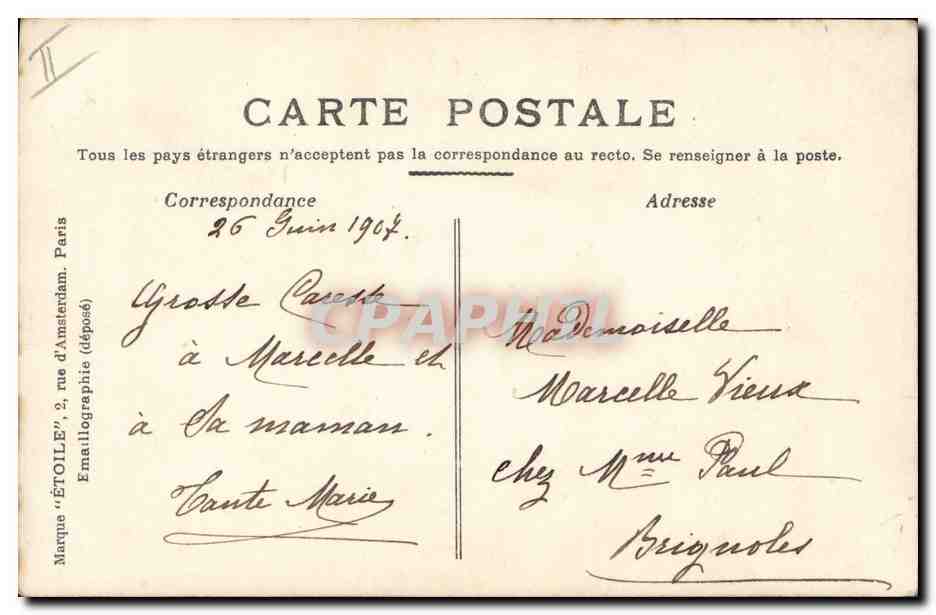 II
CARTE POSTALE
Tous les pays étrangers n'acceptent pas la correspondance au recto. Se renseigner à la poste.
Correspondance
26 Juin 1907.
Grosse Caresse
à Marcelle et
à Sa maman.
Tante Marie
Adresse
Mademoiselle
Marcelle Vieux
chez Mme Paul
Brignoles
Marque "ÉTOILE", 2, rue d'Amsterdam. Paris
Emaillographie (déposé)
CPAPHIL